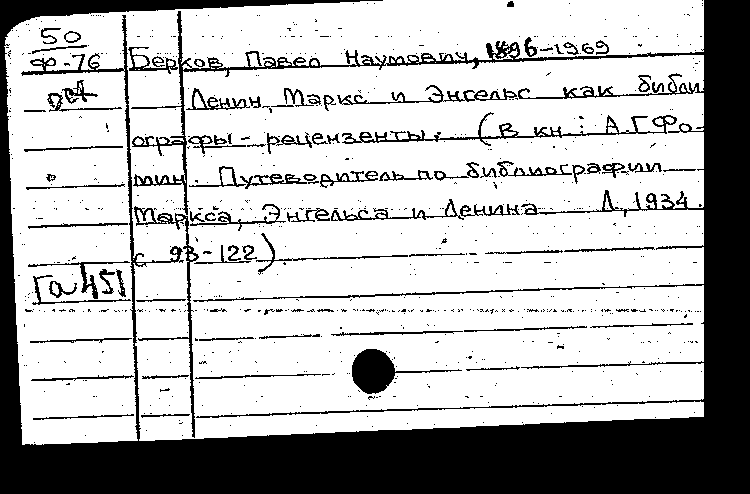 50
Ф-76 Берков, Павел Наумович, 1896-1969
Ленин, Маркс и Энгельс как библи
ографы-рецензенты. (В кн: А.Г.Фо-
мин. Путеводитель по библиографии
Маркса, Энгельса и Ленина Л, 1934.
с 93-122)